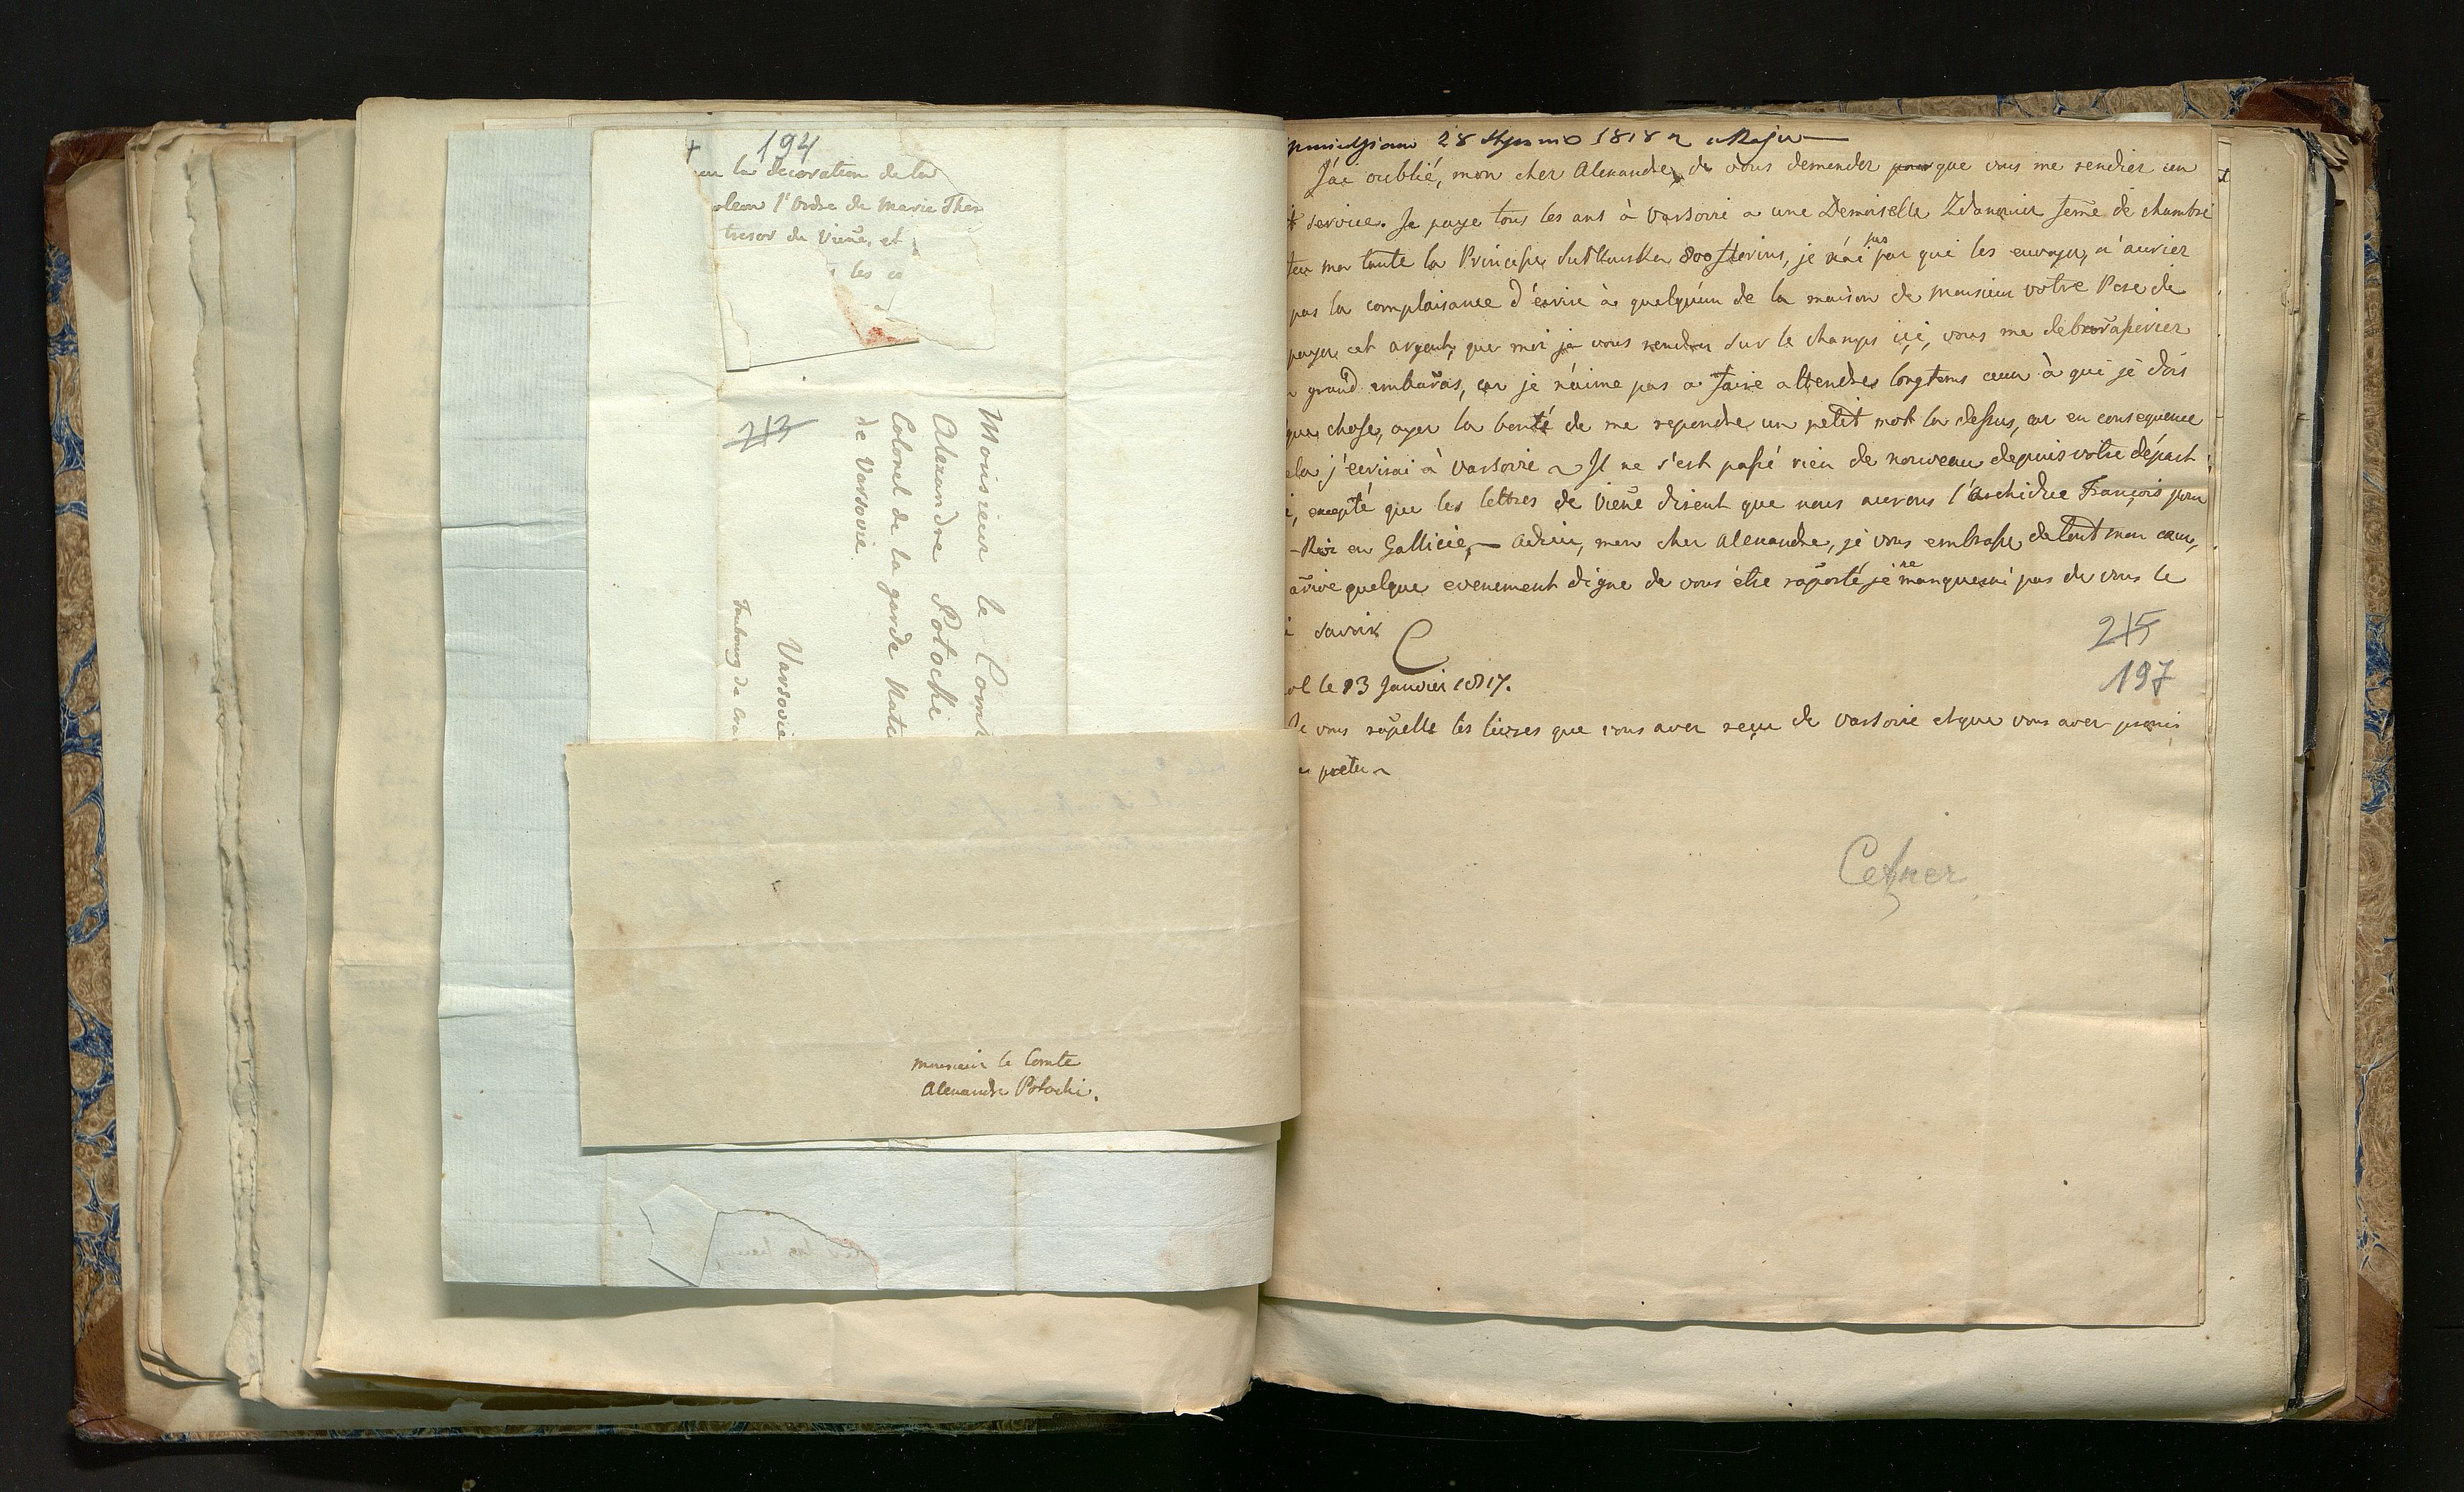 194
la decoration de la
l'Ordre de Marie Ther
tresor de Viene, et
les
213
Monsieur le Comt
Alexandre Potocki
Colonel de la garde Nati
de Varsovie
Varsovie
Faubourg de Cra
monsieur le Comte
Alexandre Potocki.
28 1818 Maju
J'ai oublié, mon cher Alexandre, de vous demender pour que vous me rendiez un
service. Je paye tous les ans à Varsovie a une Demoiselle Zdanowicz feme de chambre
ma tante la Princesse Sułkowska 800 florins, je n'ai pas par qui les envoyer, n'auriez
pas la complaisance d'écrire à quelqu'un de la maison de monsieur votre Pere de
payer cet argent, que moi je vous rendrai sur le champs ici, vous me débarasseriez
grand embaras, car je n'aime pas a faire attendre longtems ceux à qui je dois
que chose, ayez la bonté de me repondre un petit mot la dessus, car en consequence
ela j'ecrirai à Varsovie ~ Il ne s'est passé rien de nouveau depuis votre départ
i, excepté que les lettres de Viene disent que nous aurons l'Archiduc François pour
-Roi en Gallicie, — adieu, mon cher Alexandre, je vous embrasse de tout mon cœur,
arive quelque evenement digne de vous être raporté, je ne manquerai pas de vous le
savoir C
215
197
ol le 13 Janvier 1817.
Je vous rapelle les livres que vous avez reçu de Varsovie et que vous avez promis
preter ~
Cetner